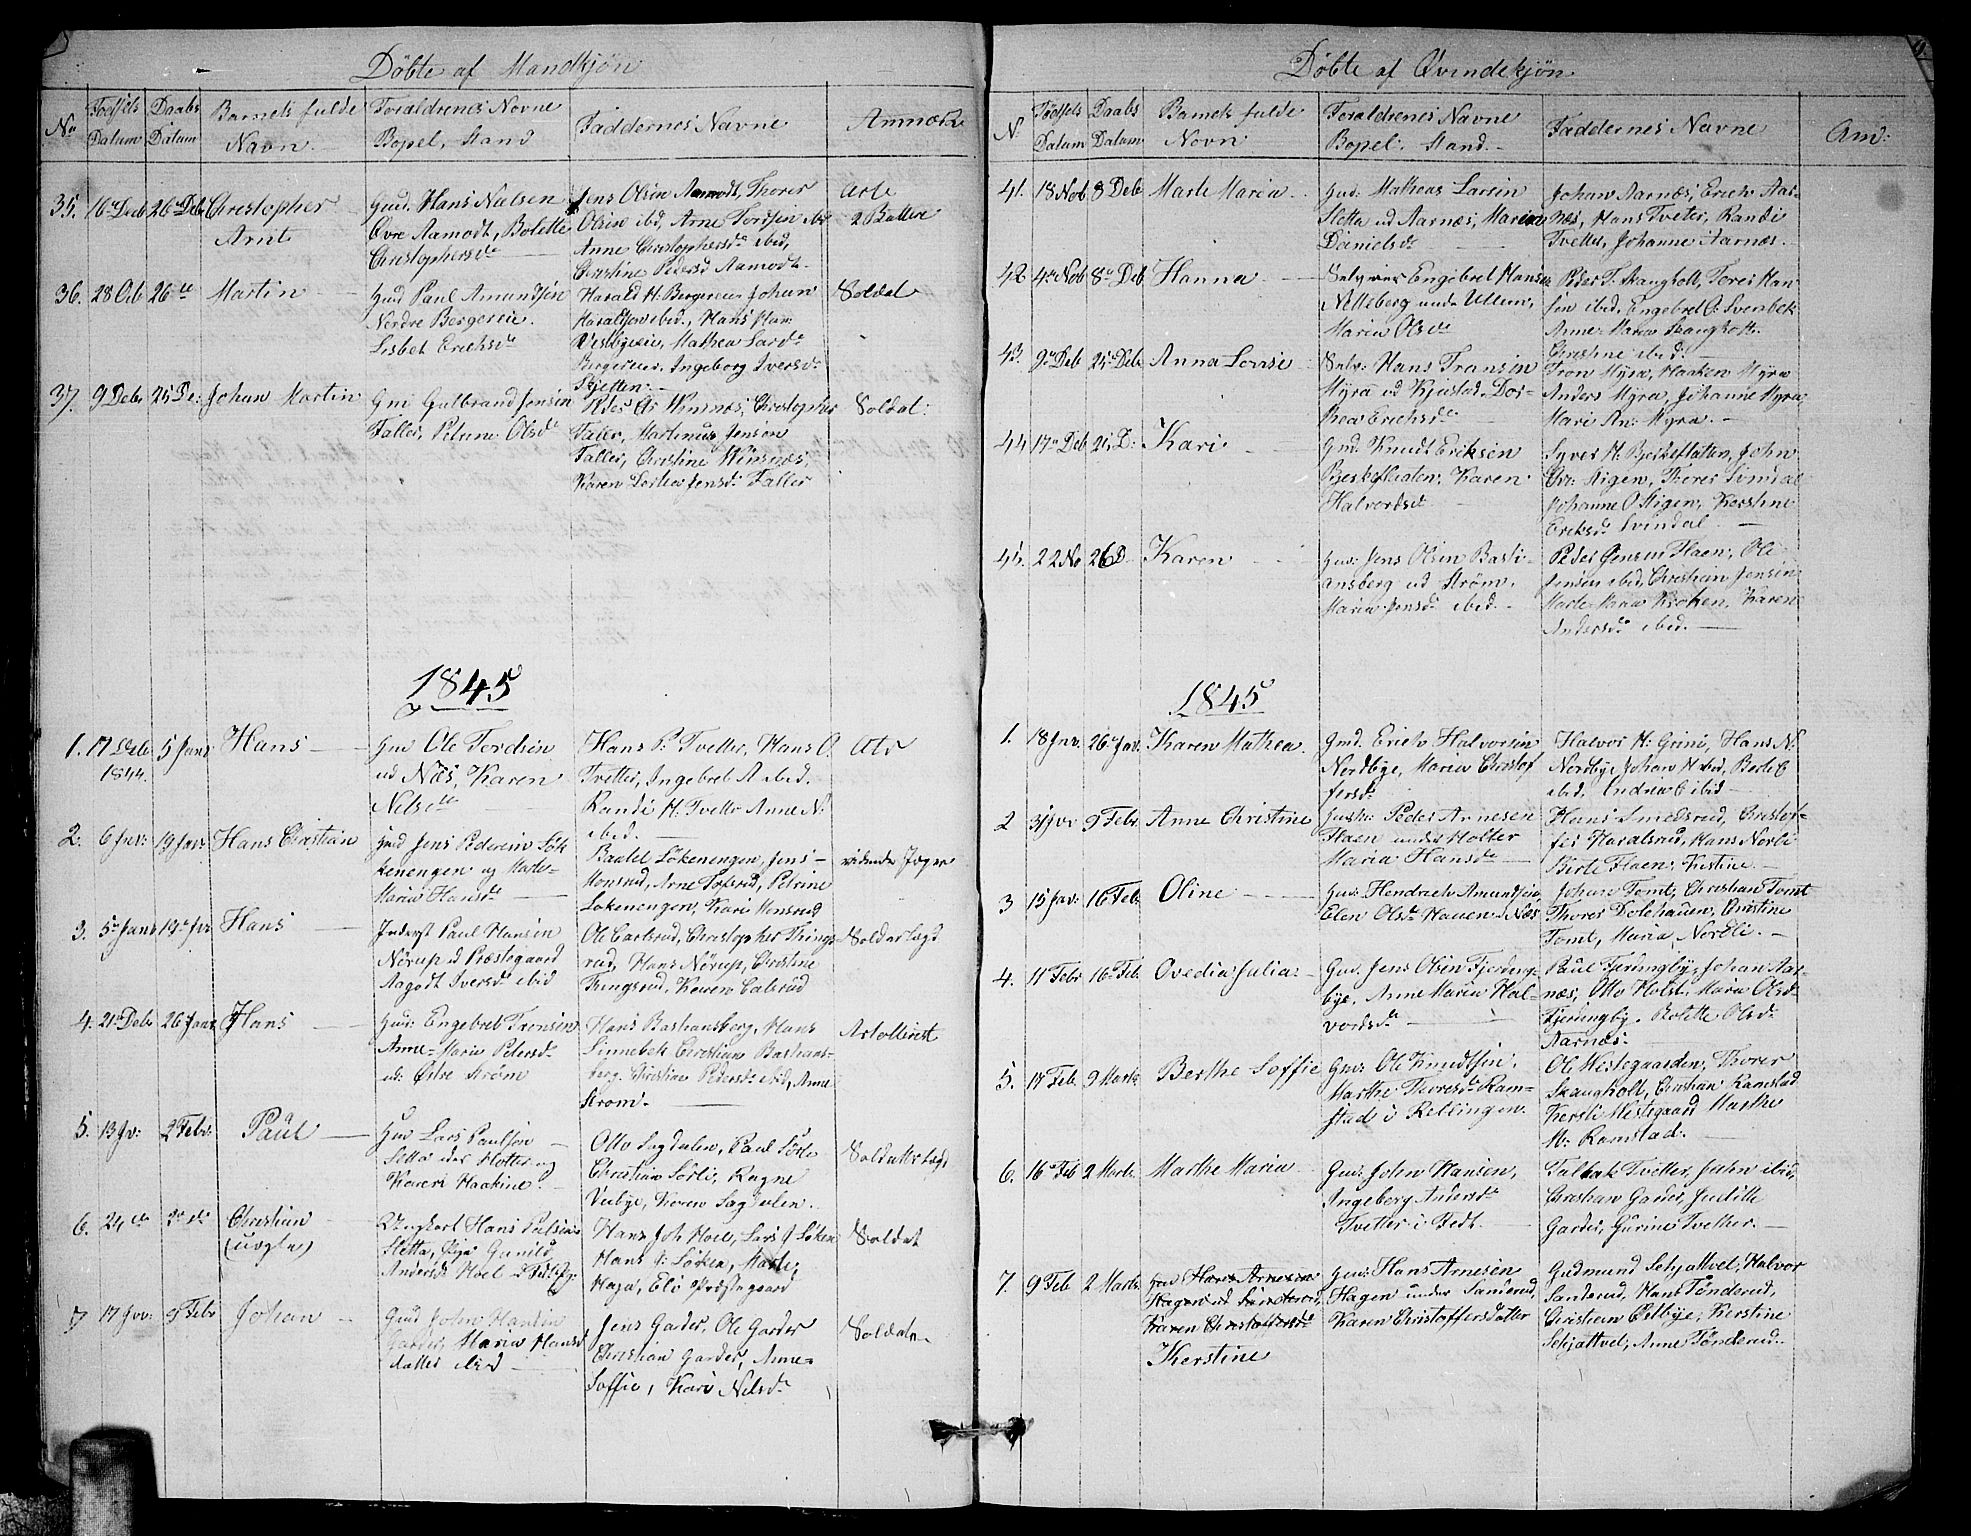 Døbte af Mandkjøn
No
Fødsels Datum
Daabs Datum
Barnets fulde Navn
Foraldrenes Navne Bopel, Stand
Faddernes Navne
Anmærk
35. 16 Deeb 26 Deb Christopher Arnt
Gmd. Hans Nielsen
Øvre Aamodt, Bolette
Christophersd
Jens Olsen Aamodt, Thorer
Olsen ibid, Arne
Anne Christophersd. ibid,
Christine Pedersd Aamodt.
Arte
2 Batterie
36. 28 Octb 26 Martin
Gmd Paul Amundsen
Nordre Bergereie.
Lisbet Erichsd
Harald H. Bergereie, Johan
Haraldsen ibid., Hans
Visbyeeie, Mathea Larsd
Bergereie, Ingeborg Iversd.
Skjetten.
Soldat
37. 9 Debr 25 De: Johan Martin
Gm: Gulbrand Jensen
Faller, Petrine Olsd
Peder Ols Winsnæs, Christopher
Faller, Martinus Jensen
Faller, Christine Winsnæs,
Karen Dorthea Jensd. Faller
Soldat:
1845
1. 17 Deb 1844. 5 Janr Hans
Gm Ole Tordsen
ud Næs, Karen
Nelsd
Hans P. Tvetter, Hans O.
Tvetter, Ingebret A ibid.
Randi H. Tvetter Anne N.
ibid.
Atr
2. 6 Jnv: 19 Janv: Hans Christian
Gmd Jens Pedersen Løk
kenengen og Marte
Maria Hansd
Baalel Løkenengen, Jens
Monsrud, Arne Tofsrud, Petrine
Løkenengen, Kari Monsrud
ridende Jæger
3. 5 Janr 19 Jvr Hans
Inderst Paul Hansen
Nørup ud Præstegaard
Aagodt Iversd ibid
Ole Carlsrud, Christopher Things
rud, Hans Nørup, Christine
Tingsrud, Karen Calsrud
Soldatlægt
4. 21 Debr 26 Janr Hans
Gm: Engebret Tronsen
Anne-Maria Petersd.
ud: Østre Strøm
Hans Bastiansberg, Hans
Linnebek Christian Bastians-
berg. Christine Pedersd. ibid, Anne
Strøm.
Artollerist
5. 13 Jv: 2 Febr: Paul
Gm Lars Paulsen
Sletta under Holter og
Karen Haakine.
Otto Sagdalen, Paul Sørli
Christian Sørli, Ragne
Veibye, Karen Sagdalen.
Soldatterlægt
6. 24 2 Christian (uægte)
Ungkarl Hans Pulsen
Sletta, Pige Gunild
Andersd Hoel i
Hans Joh Hoel, Lars J Løken
Hans J. Løken, Marte
Haga, Eli Præstegaard
Soldat
7 17 Jvv: 9 Febr Johan
Gmd John Hansen
Garder, Maria Hansd
datter ibid
Jens Garder, Ole Garder
Christian Garder, Anne
Soffie, Kari Nilsd.
Soldat
Døbte af Qvindekjøn
N.
Fødsels Datum
Daabs Datum
Barnets fulde Novn
Foraldrenes Navne Bopel. Stand.
Faddernes Navne
Am:
41. 18 Nob 8 Deb Marte Maria
Gm: Mathias Larsen
Sletta ud Aarnæs, Maren
Danielsd
Johan Aarnæs, Erich Aar-
næs, Hans Tveter, Randi
Tvetter, Johanne Aarnæs.
42 4 Nob 8 Deb Hanna
Selveier Engebret Hansen
Nelleberg unde Ullern,
Maria Olsd
Peder T. Skaugholt, Tores Han
sen ibid, Engebret O. Svenbek
Anne Maria Skaugholt
Christine ibid.
43. 9 Deb 25 Deb Anna Lovise
Selv: Hans Transen
Myra ud Kjustad Dor-
thea Erichsd
Tron Myra, Haaken Myra
Anders Myra, Johanne Myra
Mari An: Myra.
44 17 Deb 25 D: Kari
Gmd. Knudt Eriksen
Berkeflaaten, Karen
Halvordsd
Syver H. Berkeflatten, John
Stigen, Thores Svindal
Johanne O Stigen, Kerstine
Eriksd Svindal.
45. 22 No 26 D Karen
Gm: Jens Olsen Basti-
ansberg ud Strøm,
Maria Jensd ibid.
Peder Jensen Flaen, Ole
Jensen ibid, Christian Jensen
Marte Maria Kroken, Karen
Andersd. ibid.
1845
1. 18 Jnv. 26 Jav. Karen Mathea.
Gmd. Erich Halvorsen
Nordbye, Maria Christof
fersd.
Halvor H: Grini, Hans N.
Nordby, Johan H ibid, Berte
ibid, Andrea ibid
2 3 Jvr 9 Febr. Anne Christine
Gmd: Peder Arnesen
Flaen under Holter
Maria Hansd
Hans Smedsrud, Christof-
fer Haralsrud, Hans Norli
Birte Flaen, Kirstine.
3 15 Jav: 16 Feb. Oline
Gm: Hendrich Amundsen
Elen Olsd Hauen i Næs
Johan Tomt, Christian Tomt
Thores Dolehauen, Christine
Tomt, Maria Nordli.
4. 11 Febr 16 Feb. Ovedia Julia
Gm. Jens Olsen Fjerding-
bye, Anne Maria Hal-
vordsd
Paul Fjerdingby, Johan Aar-
næs, Otto Holst, Maria Olsd
Fjerdingby. Bolette Olsd.
Aarnæs.
5. 17 Feb. 9 Marts Berthe Soffie
Gm: Ole Knudtsen,
Marthe Thoresd. Ram-
stad i Rellingen.
Ole Westegaarden, Thorer
Skaugholt, Christian Ramstad
Kersti Westgaard Marthe
M: Ramstad.
6. 16 Feb 2 Marts. Marthe Maria
Gm: John Hansen,
Ingeberg Andersd
Tvetter i Fedt.
Talbak Tvetter, John ibid,
Christian Garder, Judithe
Garder, Gurine Tvetter.
7. 9 Feb 2 Marts. Gm Hans Arnesen
Hagen ud Sanderud,
Karen Christoffersd
Kerstine
Gm: Hans Arnesen
Hagen under Sanderud,
Karen Christoffersdatter
Gudmund Schjattvel, Halvor
Sanderud, Hans Tønderud,
Christian Østbye, Kerstine
Schjattvel, Anne Tønderud.